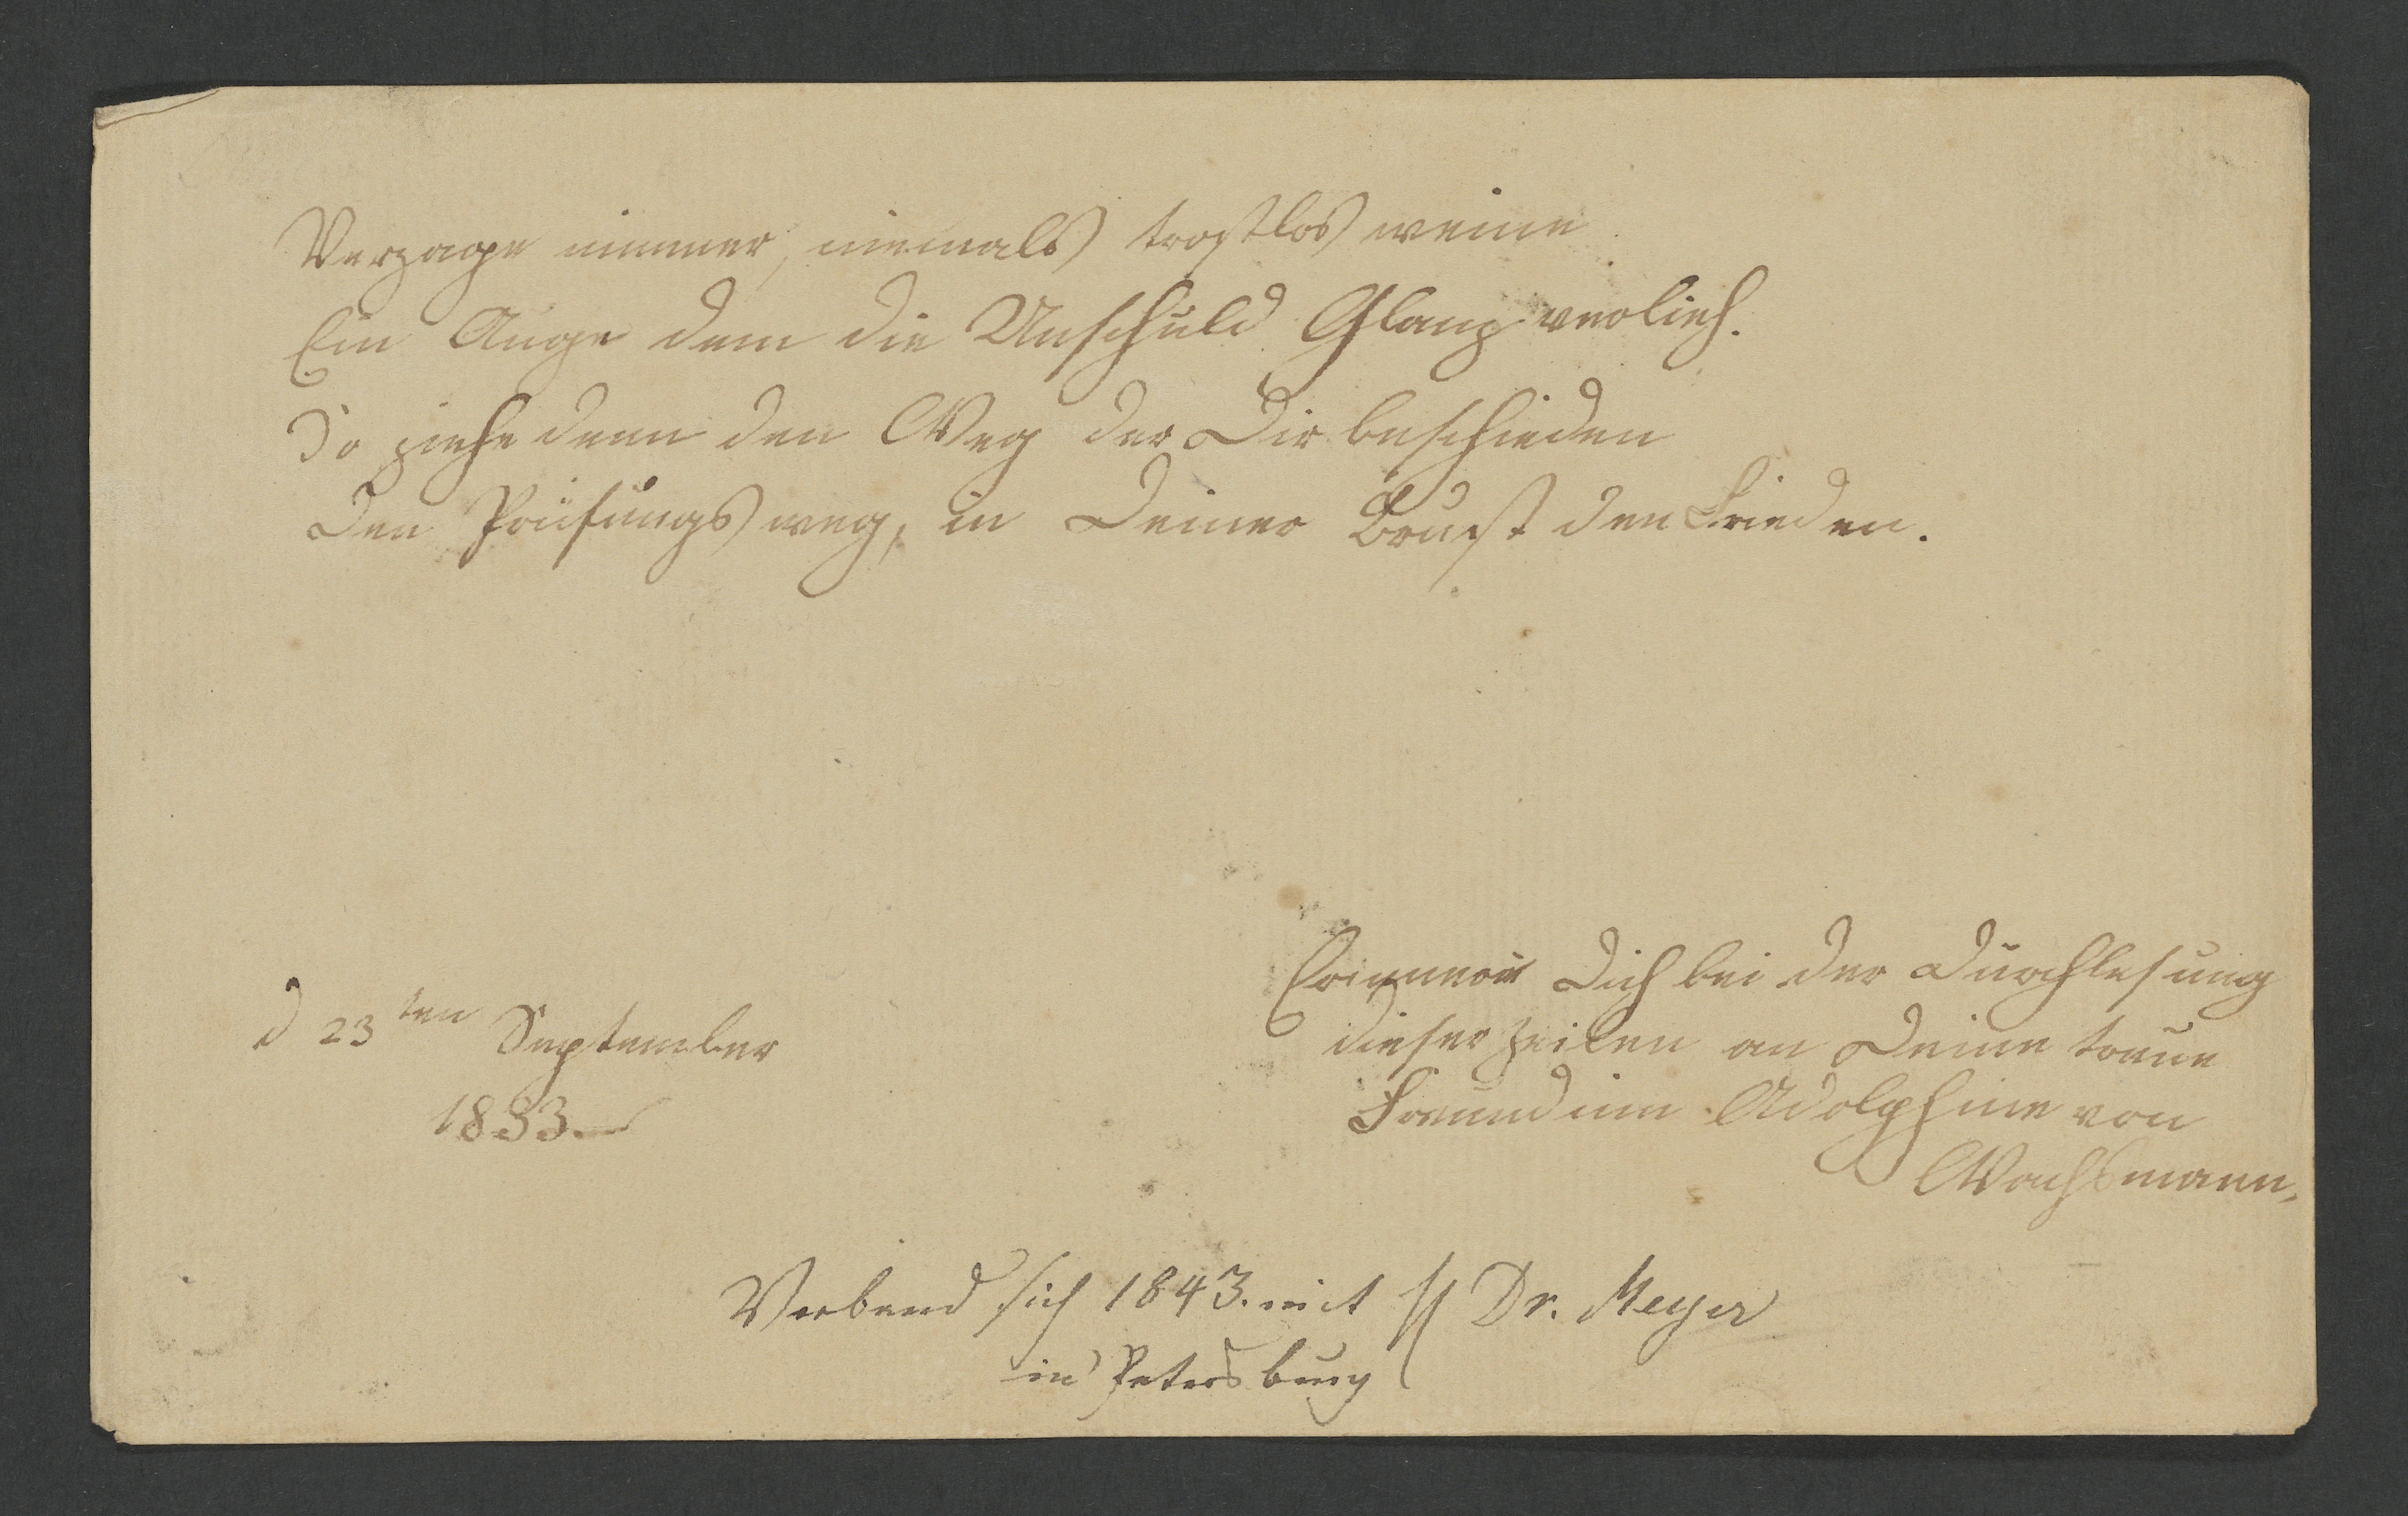 Verzage nimmer, niemals trostlos weine
Ein Auge dem die Unschuld Glanz verlieh.
So ziehe denn den Weg der Dir beschieden
Den Prüfungsweg, in Deiner Brust den Frieden.
d 23ten September
1833.
Erinnere Dich bei der Durchlesung
dieser Zeilen an Deine treue
Freundinn Adolphine von
Wachsmann,
Verband sich 1843. mit Dr. Meyer
in Petersburg